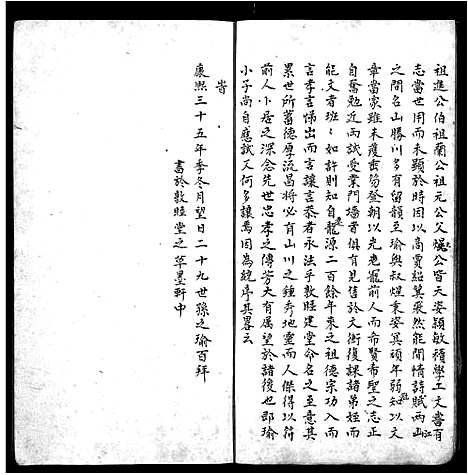 祖進公伯祖蘭公祖元公父燦公皆天姿穎敏積學工文嘗有
志當世用而未顯於時因以高賈紹箕裘然能閒情詩賦兩山
之間名山勝川多有留韻至瑜與叔煋秉姿其頑年弱知以文
章當家雖未獲雲笏登朝以光老龐前人而希賢希聖之志正
自奮勉近雨試受業門墻者俱有見售於文衡復課諸弟姪而
能文者班〻如許則知自龍源二百餘年來之祖德宗功入而
言孝言悌出而言讓言恭者永法乎敦睦建堂命名之至意其
累世所蓄德厚流昌將必有山川之鍾秀地靈而人傑得以符
前人小居之深念先世忠孝之傳芳大有属望於諸後也郎瑜
小子尚自應試又何多讓焉因為續序其畧云
旹
康熙三十五年季冬月望日二十九世孫之瑜百拜
書於敦睦堂之草墨軒中